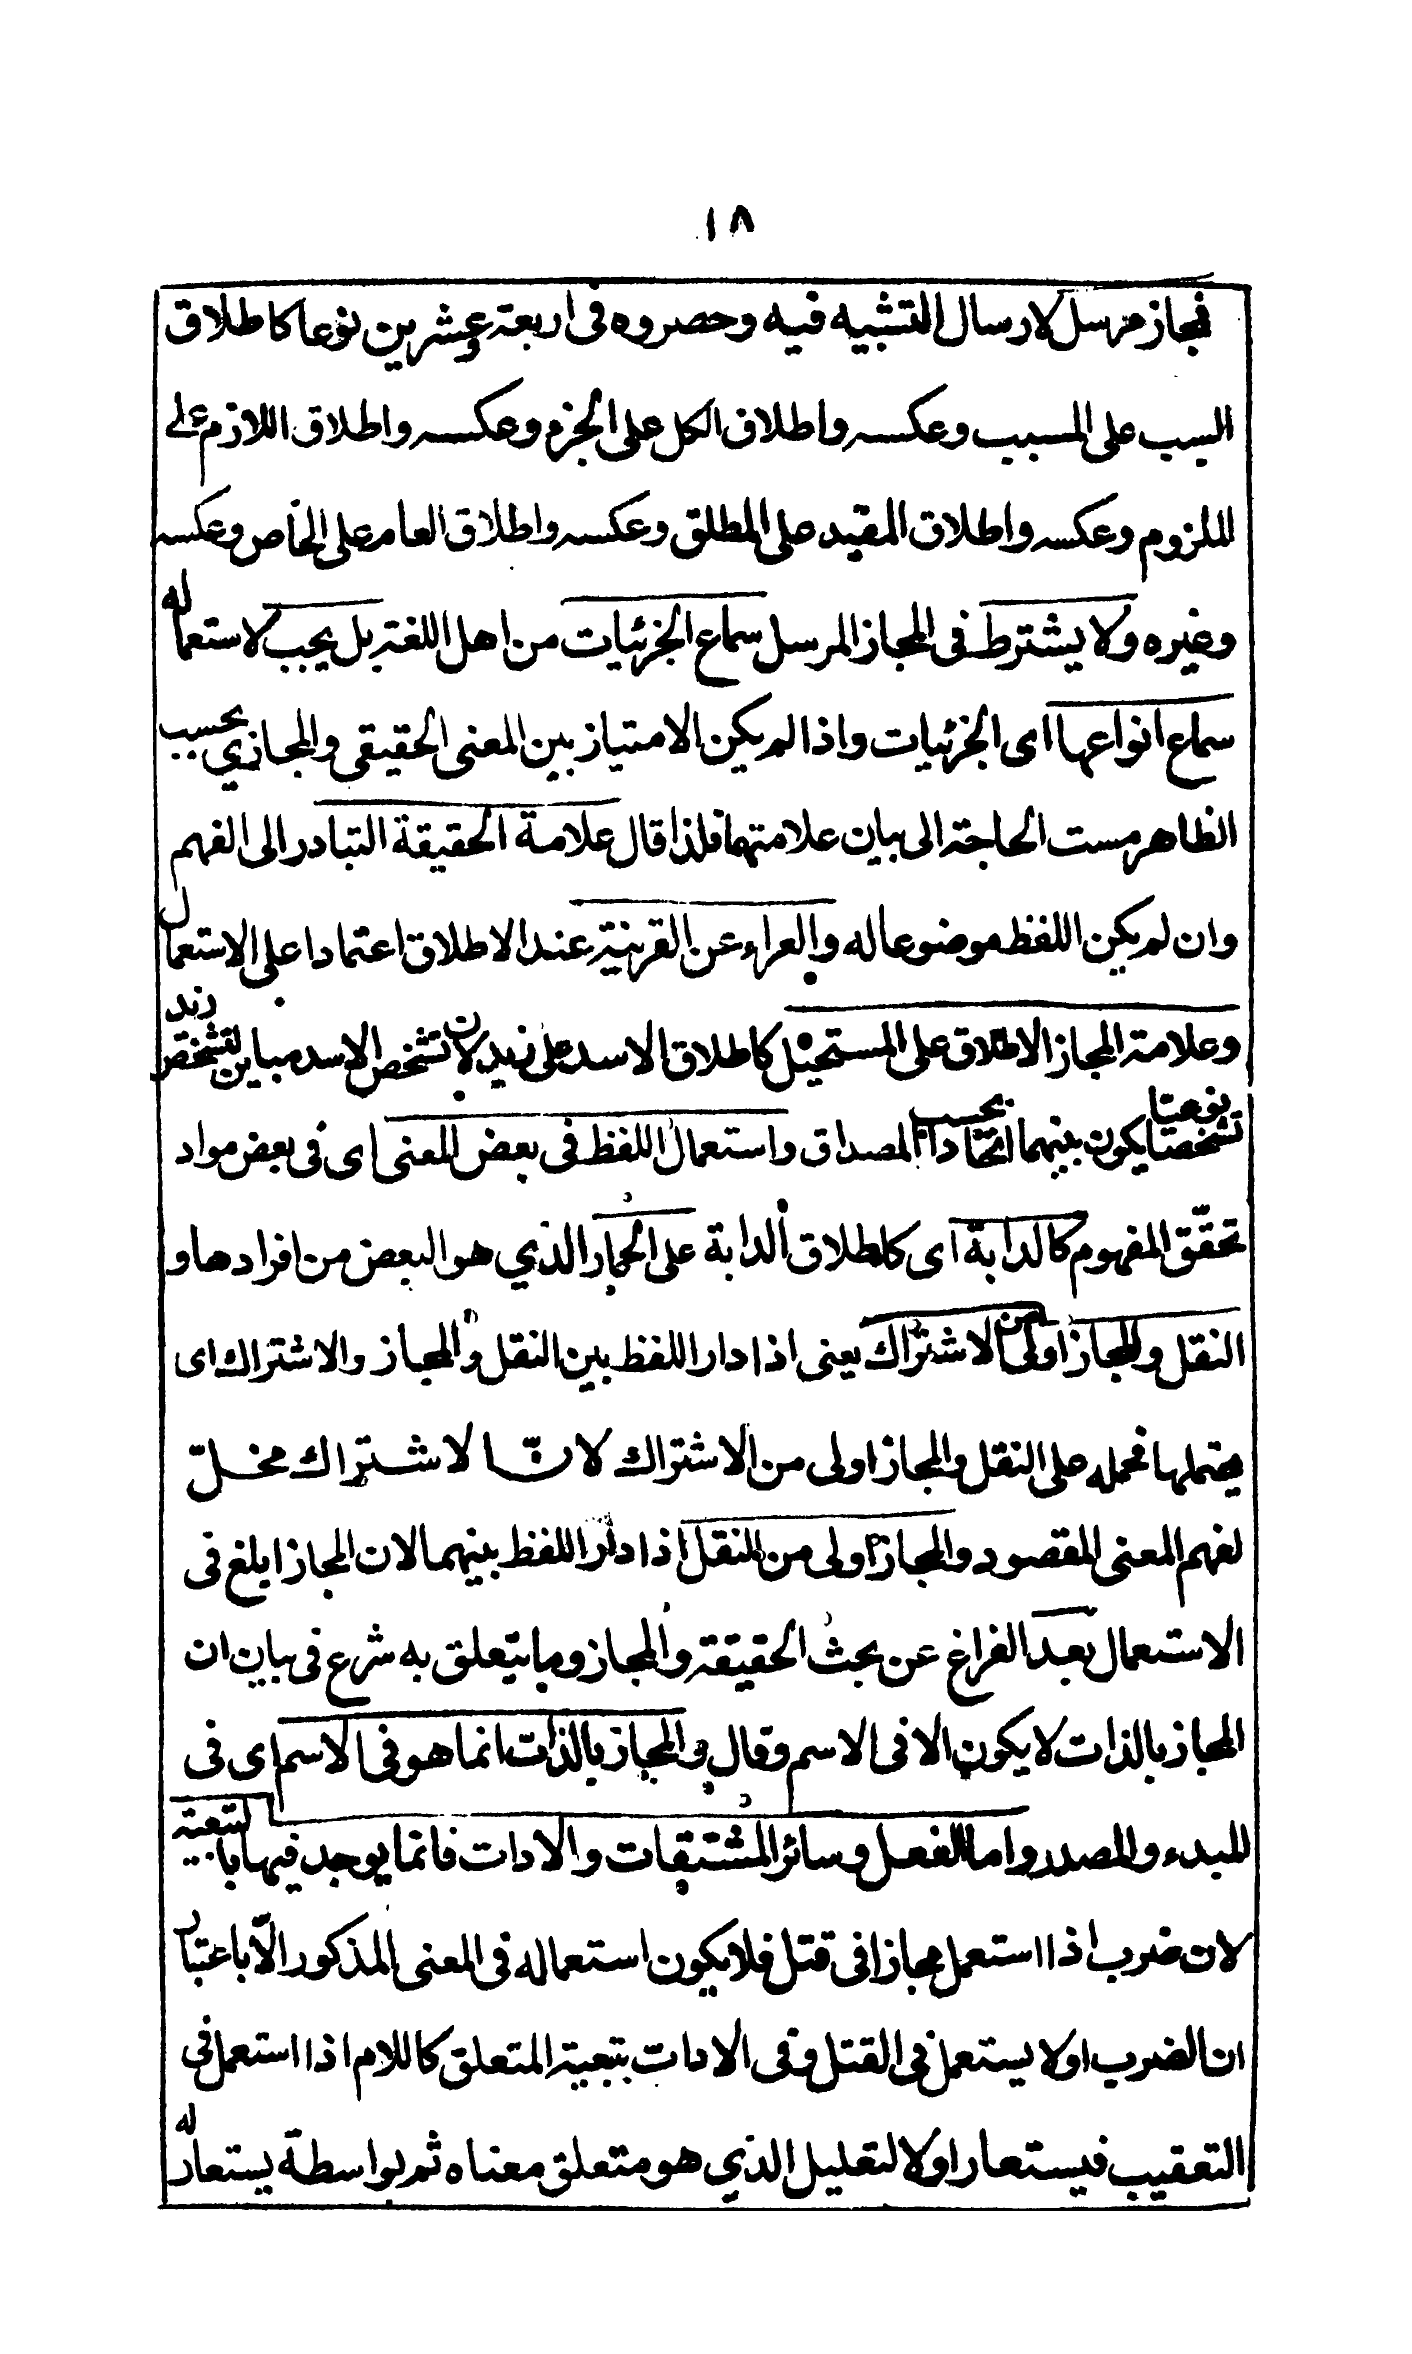 ١٨
فمجاز مرسل لارسال التشبيه فيه وحصروه فى اربعة وعشرين نوعا كاطلاق
السبب على المسبب وعكسه واطلاق الكل على الجزء وعكسه واطلاق اللازم على
الملزوم وعكسه واطلاق المقيد على المطلق وعكسه واطلاق العام على الخاص وعكسه
وغيره ولا يشترط فى المجاز المرسل سماع الجزئيات من اهل اللغة بل يجب لاستعماله
سماع انواعها اى الجزئيات واذا لم يكن الامتياز بين المعنى الحقيقى والمجازي بحسب
الظاهر مست الحاجة الى بيان علامتهما فلذا قال علامة الحقيقة التبادر الى الفهم
وان لم يكن اللفظ موضوعا له والعراء عن القرينة عند الاطلاق اعتمادا على الاستعمال
وعلامة المجاز الاطلاق على المستحيل كاطلاق الاسد على زيد لان تشخص الاسد مباين لتشخص زيد
تشخصا يكون بينهما اتحادا بحسب المصداق واستعمال اللفظ فى بعض المعنى اى فى بعض مواد
تحقق المفهوم كالدابة اى كاطلاق الدابة على الحمار الذي هو البعض من افرادها و
النقل والمجاز اولى من الاشتراك يعنى اذا دار اللفظ بين النقل والمجاز والاشتراك اى
يحتملها فحمله على النقل والمجاز اولى من الاشتراك لان الاشتراك مخلّ
لفهم المعنى المقصود والمجاز اولى من النقل اذا دار اللفظ بينهما لان المجاز ابلغ فى
الاستعمال بعد الفراغ عن بحث الحقيقة والمجاز وما يتعلق به شرع فى بيان ان
المجاز بالذات لا يكون الا فى الاسم وقال والمجاز بالذات انما هو فى الاسم اى فى
المبدء والمصدر واما الفعل وسائر المشتقات والادات فانما يوجد فيها بالتبعية
لان ضرب اذا استعمل مجازا فى قتل فلا يكون استعماله فى المعنى المذكور الّا باعتبار
ان الضرب اولا يستعمل فى القتل وفى الادات بتبعية المتعلق كاللام اذا استعمل فى
التعقيب فيستعار اولا لتعليل الذي هو متعلق معناه ثم بواسطة يستعار له